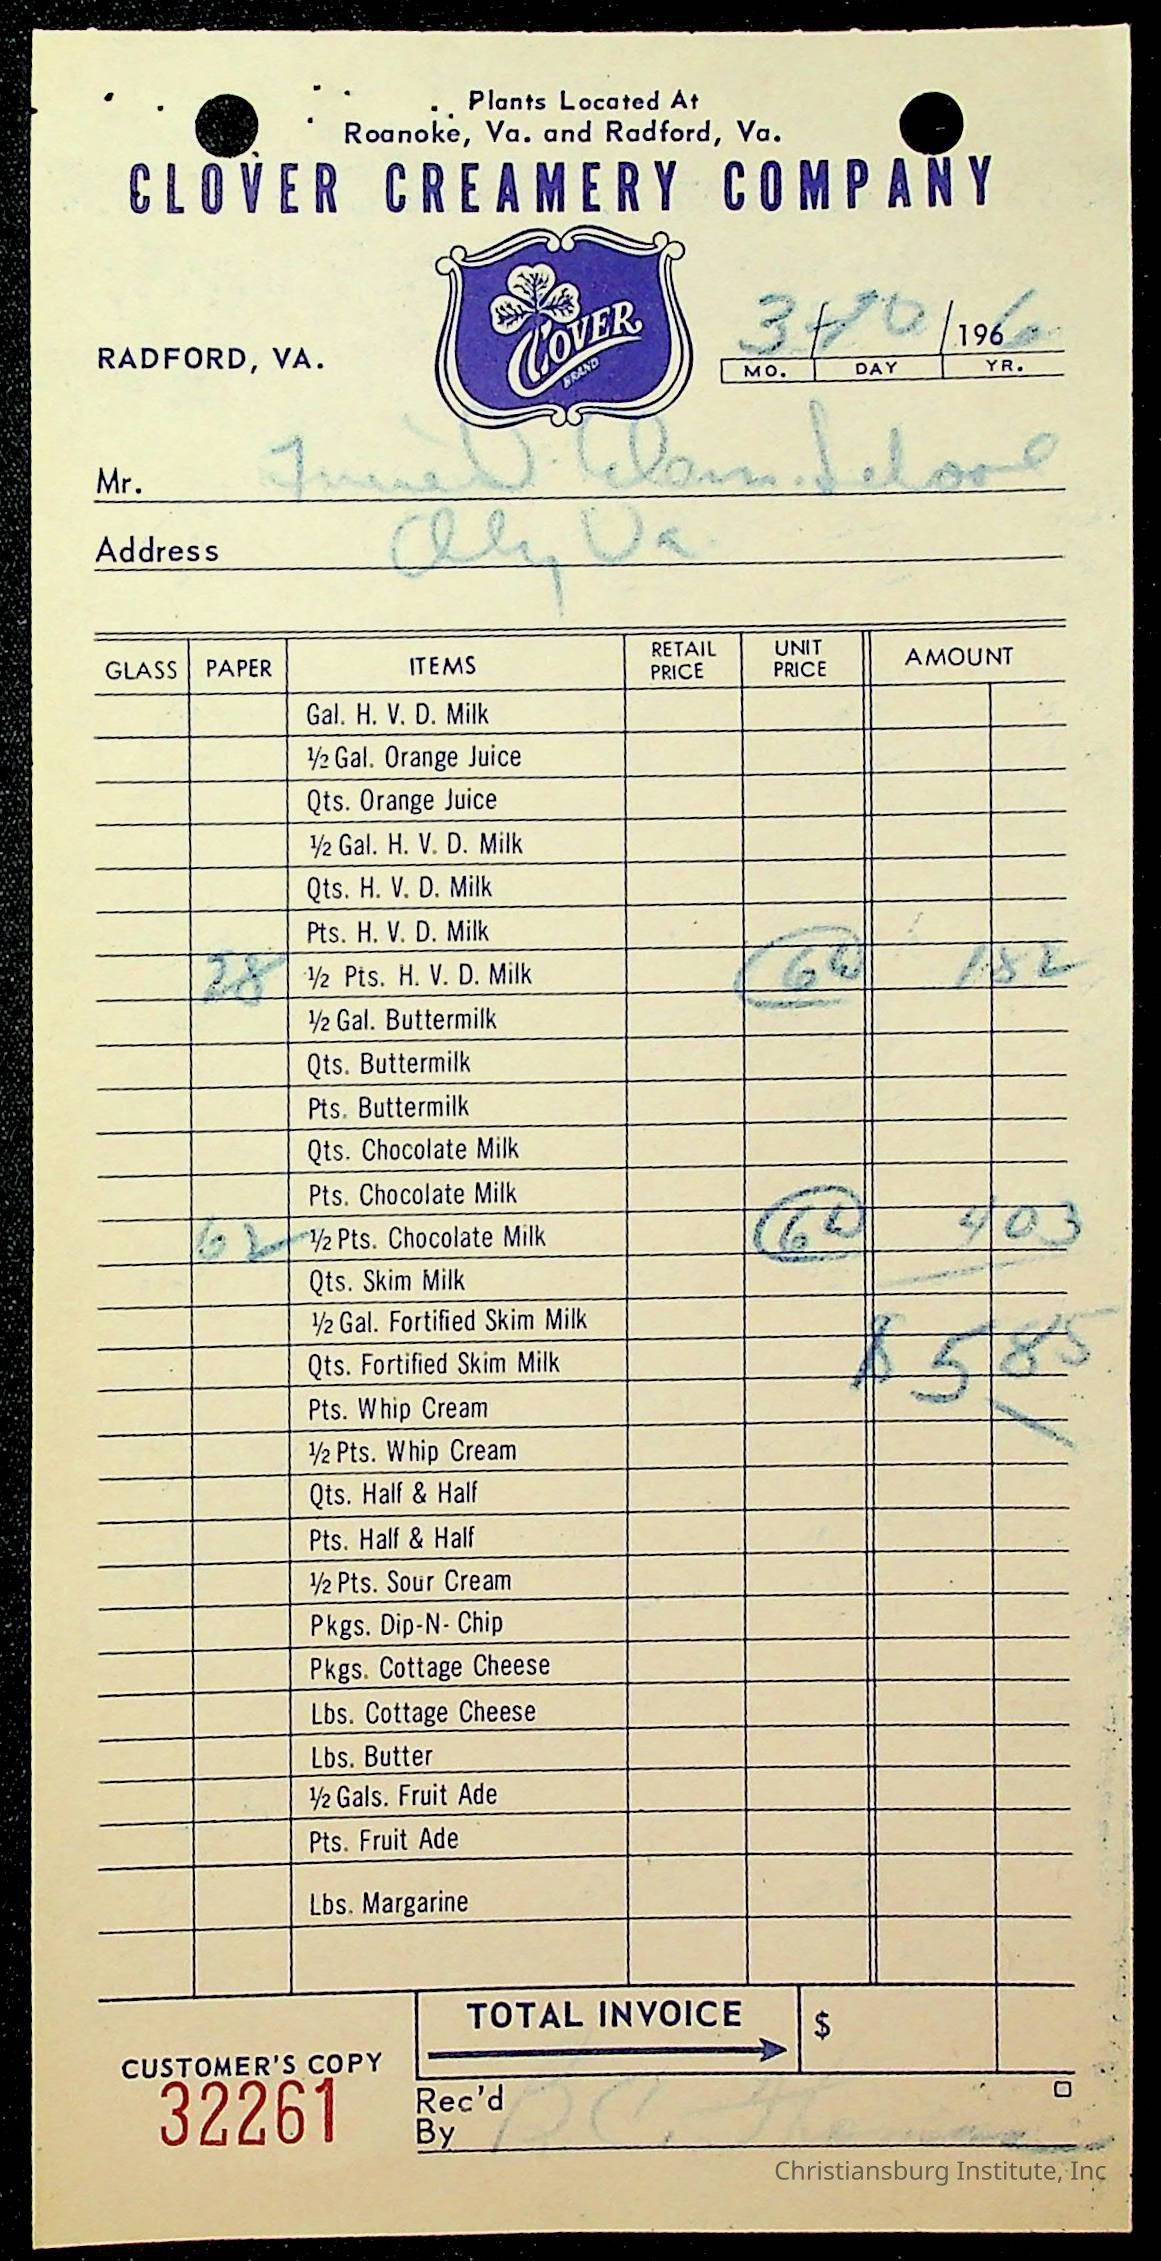 Plants Located At
Roanoke, Va. and Radford, Va.
CLOVER CREAMERY COMPANY
CLOVER
BRAND
RADFORD, VA.
3 / 20 / 1966
MO. DAY YR.
Mr. Elem. School
Address Va
GLASS PAPER ITEMS RETAIL PRICE UNIT PRICE AMOUNT
Gal. H. V. D. Milk
½ Gal. Orange Juice
Qts. Orange Juice
½ Gal. H. V. D. Milk
Qts. H. V. D. Milk
Pts. H. V. D. Milk
28 ½ Pts. H. V. D. Milk 6½ 1 82
½ Gal. Buttermilk
Qts. Buttermilk
Pts. Buttermilk
Qts. Chocolate Milk
Pts. Chocolate Milk
62 ½ Pts. Chocolate Milk 6½ 4 03
Qts. Skim Milk
½ Gal. Fortified Skim Milk
$ 5 85
Qts. Fortified Skim Milk
Pts. Whip Cream
½ Pts. Whip Cream
Qts. Half & Half
Pts. Half & Half
½ Pts. Sour Cream
Pkgs. Dip-N- Chip
Pkgs. Cottage Cheese
Lbs. Cottage Cheese
Lbs. Butter
½ Gals. Fruit Ade
Pts. Fruit Ade
Lbs. Margarine
TOTAL INVOICE $
CUSTOMER'S COPY
32261
Rec'd
By
Christiansburg Institute, Inc